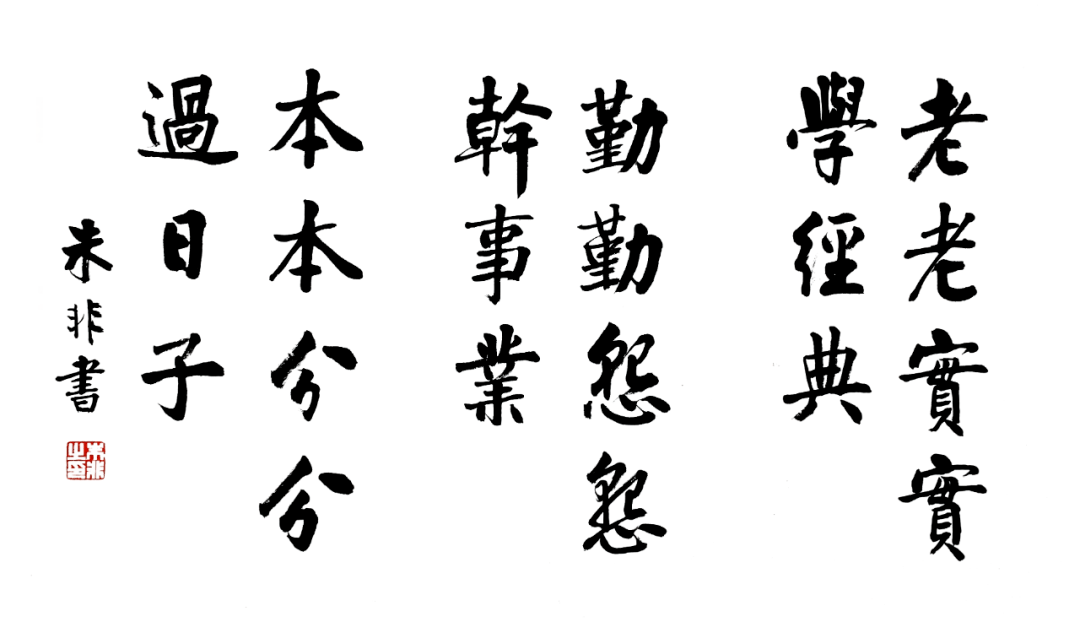 老老實實
學經典
勤勤懇懇
幹事業
本本分分
過日子
朱非書
朱非之印